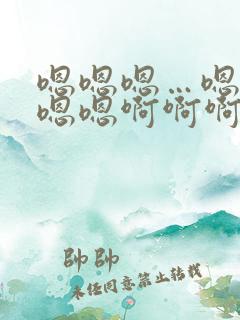 嗯嗯嗯…嗯
嗯嗯啊啊啊
帥帥
未经同意禁止转载